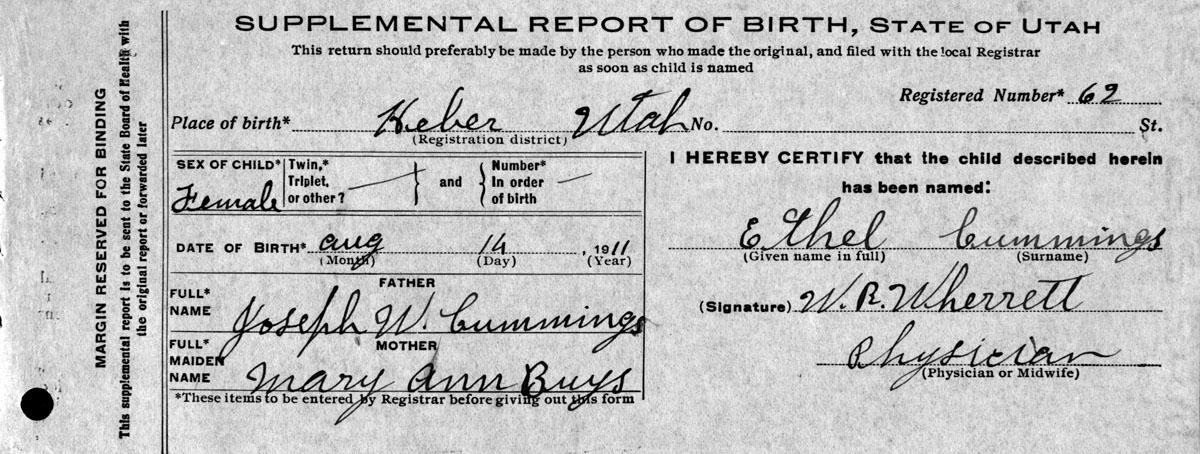 SUPPLEMENTAL REPORT OF BIRTH, STATE OF UTAH
This return should preferably be made by the person who made the original, and filed with the local Registrar
as soon as child is named
Registered Number* 62
Place of birth* Heber Utah No. St.
(Registration district)
SEX OF CHILD* Female
Twin,*
Triplet,
or other?
and
Number*
In order
of birth
DATE OF BIRTH* Aug 14, 1911
(Month) (Day) (Year)
FATHER
FULL*
NAME
Joseph W. Cummings
MOTHER
FULL*
MAIDEN
NAME
Mary Ann Buys
*These items to be entered by Registrar before giving out this form
I HEREBY CERTIFY that the child described herein
has been named:
Ethel Cummings
(Given name in full) (Surname)
(Signature) W. R. Wherrett
Physician
(Physician or Midwife)
MARGIN RESERVED FOR BINDING
This supplemental report is to be sent to the State Board of Health with
the original report or forwarded later